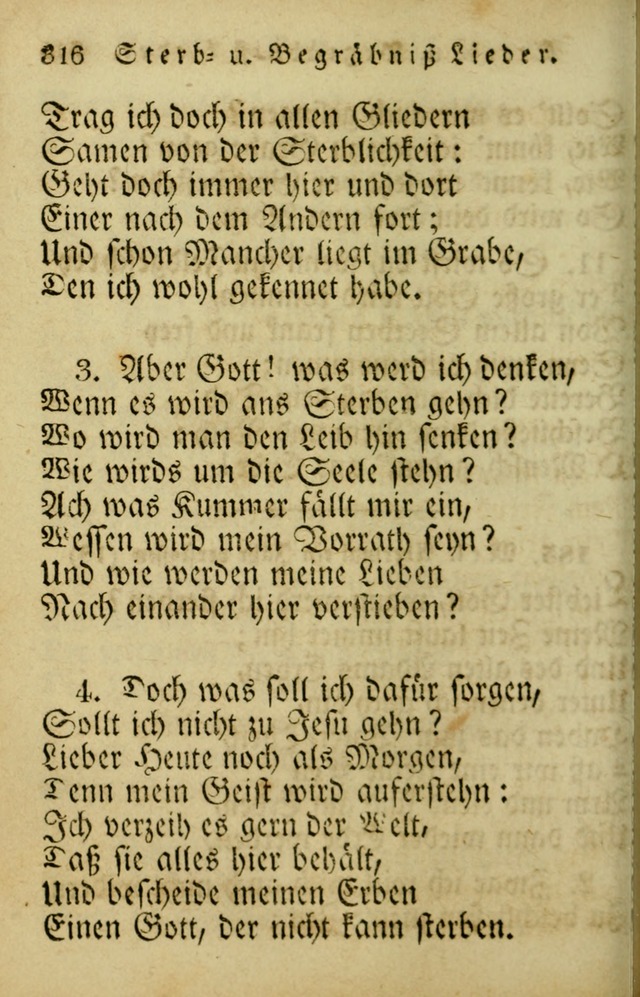 316 Sterb- u. Begräbniß Lieder.
Trag ich doch in allen Gliedern
Samen von der Sterblichkeit:
Geht doch immer hier und dort
Einer nach dem Andern fort;
Und schon Mancher liegt im Grabe,
Den ich wohl gekennet habe.
3. Aber Gott! was werd ich denken,
Wenn es wird ans Sterben gehn?
Wo wird man den Leib hin senken?
Wie wirds um die Seele stehn?
Ach was Kummer fällt mir ein,
Wessen wird mein Vorrath seyn?
Und wie werden meine Lieben
Nach einander hier verstieben?
4. Doch was soll ich dafür sorgen,
Sollt ich nicht zu Jesu gehn?
Lieber Heute noch als Morgen,
Denn mein Geist wird auferstehn:
Ich verzeih es gern der Welt,
Daß sie alles hier behält,
Und bescheide meinen Erben
Einen Gott, der nicht kann sterben.